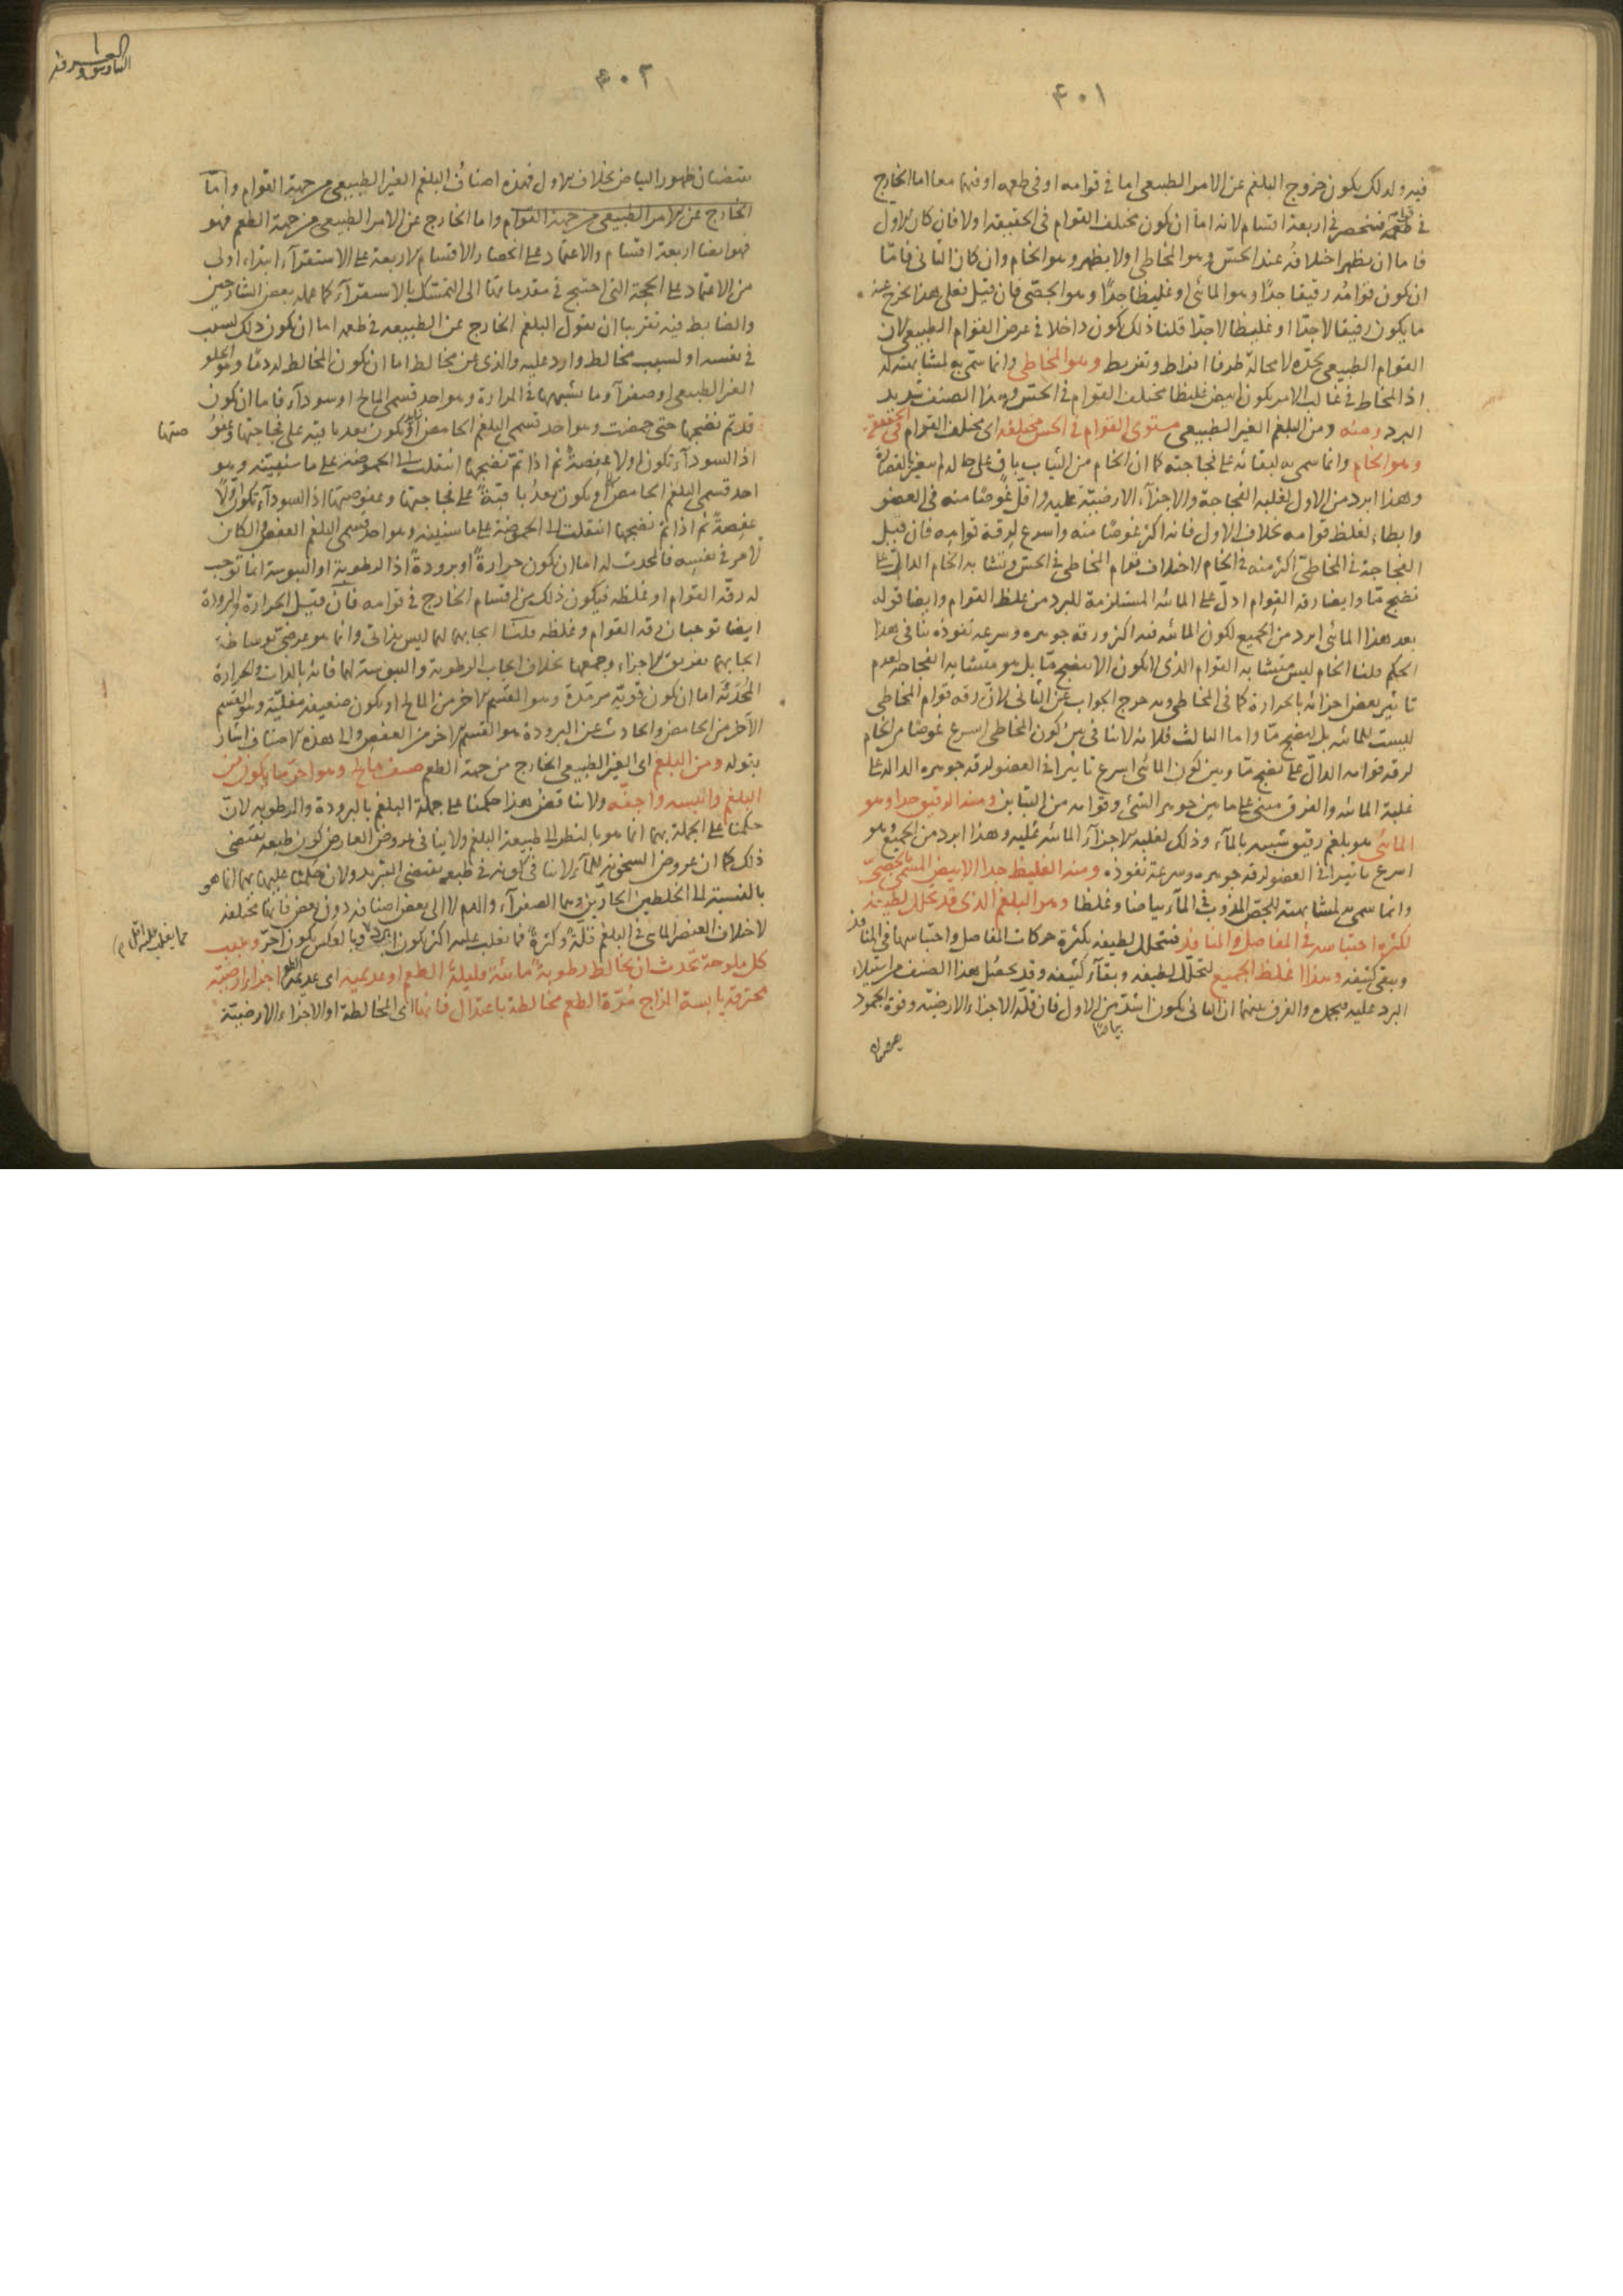 ٤٠١
فيه ولذلك يكون خروج البلغم عن الامر الطبيعى اما فى قوامه او فى طعمه او فيهما معا اما الخارج
فى قوامه فينحصر فى اربعة اقسام لانه اما ان يكون مختلف القوام فى الحقيقة اولا فان كان الاول
فاما ان يظهر اختلافه عند الحسّ وهو المخاطى اولا يظهر وهو الخام وان كان الثانى فامّا
ان يكون قوامه رقيقا جدّا وهو المائى او غليظا جدّا وهو الجصّى فان قيل فعلى هذا يخرج عنه
ما يكون رقيقا لا جدّا او غليظا لا جدّا قلنا ذلك يكون داخلا فى عرض القوام الطبيعى لان
القوام الطبيعى يحدّه لا محالة طرفا افراط وتفريط وهو المخاطى وانما سمّى به لمشابهته له
اذ المخاط فى غالب الامر يكون ابيض غليظا مختلف القوام فى الحسّ وهذا الصنف شديد
البرد ومنه ومن البلغم الغير الطبيعى مستوى القوام فى الحسّ مختلفه اى مختلف القوام فى الحقيقة
وهو الخام وانما سمى به لبقائه على فجاجته كما ان الخام من الثياب باق على حاله لم يغيره القصارة
وهذا ابرد من الاول لغلبة الفجاجة والاجزآء الارضيّة عليه واقلّ غوصًا منه فى العضو
وابطاء لغلظ قوامه بخلاف الاول فانه اكثر غوصًا منه واسرع لرقة قوامه فان قيل
الفجاجة فى المخاطىّ اكثر منه فى الخام لاختلاف قوام المخاطى فى الحسّ وتشابه الخام الدالّ على
نضج مّا وايضا رقة القوام ادلّ على المائيه المستلزمة للبرد من غلظ القوام وايضا قوله
بعد هذا المائى ابرد من الجميع لكون المائيه فيه اكثر ورقة جوهره وسرعة نفوذه ينافى هذا
الحكم قلنا الخام ليس متشابه القوام الذى لا يكون الا بنضج مّا بل هو متشابه الفجاجة لعدم
تاثير بعض اجزائه بالحرارة كما فى المخاطى وبه خرج الجواب عن الثانى لانّ رقة قوام المخاطى
ليست للمائيه بل لنضج مّا واما الثالث فلانه لا ينافى بين كون المخاطى اسرع غوصًا من الخام
لرقة قوامه الدالّ على نضج مّا وبين كون المائى اسرع تاثيرا فى العضو لرقة جوهره الدالة على
غلبة المائيه والفرق مبنى على ما بين جوهر الشئ وقوامه من التباين ومنه الرقيق جدا وهو
المائى هو بلغم رقيق شبيه بالمآء وذلك لغلبة الاجزآء المائيه عليه وهذا ابرد من الجميع وهو
اسرع تاثيرا فى العضو لرقة جوهره وسرعة نفوذه ومنه الغليظ جدا الابيض المسمّى بالجصىّ
وانما سمى به لمشابهته للجصّ المذوب فى المآء بياضا وغلظا وهو البلغم الذى قد تحلل لطيفه
لكثرة احتباسه فى المفاصل والمنافذ فيتحلل لطيفه بكثرة حركات المفاصل واحتباسها فى المنافذ
ويبقى كثيفه وهذا اغلظ الجميع لتحلّل لطيفه وبقآء كثيفه وقد يحصل هذا الصنف من استيلاء
البرد عليه فيجمده والفرق بينهما ان الثانى يكون اشدّ بياضًا من الاول فان قلّة الاجزاء الارضيّه وقوة الجمود
يقتضيان
٤٠٢
يقتضيان ظهور البياض بخلاف الاول فهذه اصناف البلغم الغير الطبيعى من جهة القوام وامّا
الخارج عن الامر الطبيعى من جهة القوام واما الخارج عن الامر الطبيعى من جهة الطعم فهو
فهو ايضا اربعة اقسام والاعتماد على انحصار الاقسام الاربعة على الاستقرآء ابتداء اولى
من الاعتماد على الحجة التى احتيج فى مقدماتها الى التمسّك بالاستقرآء كما عمله بعض الشارحين
والضابط فيه تقريبا ان نقول البلغم الخارج عن الطبيعه فى طعمه اما ان يكون ذلك بسبب
فى نفسه او لسبب مخالط وارد عليه والذى عن مخالط اما ان يكون المخالط له دمّا وهو الحلو
الغير الطبيعى او صفرآء وما يشبهها فى المرارة وهو احد قسمى المالح او سودآء فاما ان يكون
قد تم نضجها حتى حمضت وهو احد قسمى البلغم الحامض او يكون بعد باقية على فجاجتها وعفو
صتها
اذ السودآء تكون اولا عفصة ثم اذا تمّ نضجها انتقلت الى الحموضة على ما سنبيّنه وهو
احد قسمى البلغم الحامض او يكون بعدُ باقيةً على فجاجتها وعفوصتها اذ السودآء تكون اوّلًا
عفصةً ثم اذا تم نضجها انتقلت الى الحموضة على ما سنبينه وهو احد قسمى البلغم العفص والكاين
لامر فى نفسه فالمحدث له اما ان يكون حرارةً او برودةً اذ الرطوبة او اليبوسة انما توجب
له رقّة القوام او غلظه فيكون ذلك من اقسام الخارج فى قوامه فان قيل الحرارة والبرودة
ايضا توجبان رقة القوام وغلظه قلنا ايجابهما لهما ليس بذاتى وانما هو عرضىّ بوساطة
ايجابهما تفريق الاجزاء وجمعها بخلاف ايجاب الرطوبة واليبوسة لهما فانه بالذات والحرارة
المُحدَثة اما ان يكون قويّة مرمّدة وهو القسم الاخر من المالح او يكون ضعيفة مغليّة وهو القسم
الآخر من الحامض والحادث عن البرودة هو القسم الاخر من العفص والى هذه الاصناف اشار
بقوله ومن البلغم اى الغير الطبيعى الخارج من جهة الطعم صنف مالح وهو احرّ ما يكون من
البلغم وايبسه واجفّه ولا يناقض هذا حكمنا على جملة البلغم بالبرودة والرطوبة لانّ
حكمنا على الجملة بهما انما هو بالنظر الى طبيعة البلغم ولا ينافى عروض العارض كون طبيعه يقتضى
ذلك كما ان عروض السخونة للمآء لا ينافى كونه فى طبعه يقتضى التبريد ولان حكمنا عليها بهما انما هو
بالنسبة الى الخلطين الحارّين وهما الصفرآء والدم لا الى بعض اصنافه دون بعض فانها مختلفة
لاختلاف العنصر المائى فى البلغم قلّةً وكثرةً فما يغلب عليه اكثر يكون ابرد وبالعكس يكون احرّ وسبب
مما يغلب عليه اقل
كل ملوحة تحدث ان يخالط رطوبةً مائيّة قليلة الطعم او عديمته اى عديمة الطعم اجزاء ارضيّة
محترقة يابسة المزاج مُرّة الطعم مخالطة باعتدال فانها اى المخالطة او الاجزاء الارضيّة